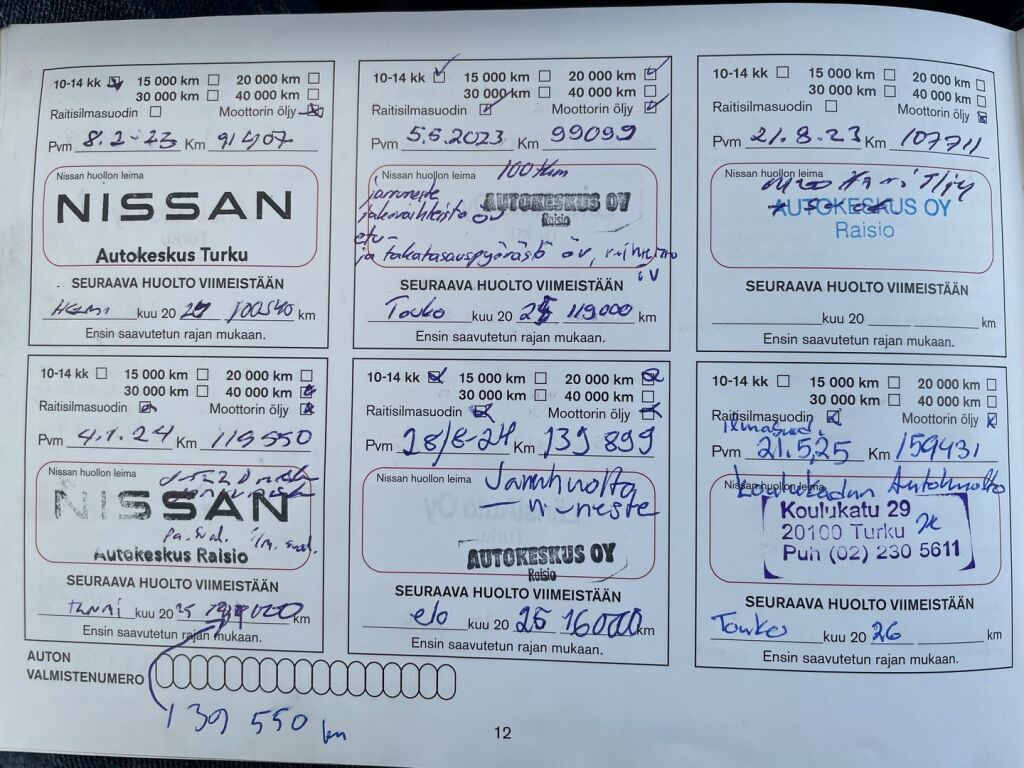 10-14 kk 15 000 km 20 000 km
30 000 km 40 000 km
Raitisilmasuodin Moottorin öljy
Pvm 8.2-23 Km 91407
Nissan huollon leima
NISSAN
Autokeskus Turku
SEURAAVA HUOLTO VIIMEISTÄÄN
Helmi kuu 20 24 km
Ensin saavutetun rajan mukaan.
10-14 kk 15 000 km 20 000 km
30 000 km 40 000 km
Raitisilmasuodin Moottorin öljy
Pvm 5.5.2023 Km 99099
Nissan huollon leima 100tkm
jarruneste
jakovaihteisto öv
AUTOKESKUS OY
Raisio
etu-
ja takatasauspyörästö öv, vaihteisto
öv
SEURAAVA HUOLTO VIIMEISTÄÄN
Touko kuu 20 119000 km
Ensin saavutetun rajan mukaan.
10-14 kk 15 000 km 20 000 km
30 000 km 40 000 km
Raitisilmasuodin Moottorin öljy
Pvm 21.8.23 Km 107711
Nissan huollon leima
AUTOKESKUS OY
Raisio
SEURAAVA HUOLTO VIIMEISTÄÄN
kuu 20 km
Ensin saavutetun rajan mukaan.
10-14 kk 15 000 km 20 000 km
30 000 km 40 000 km
Raitisilmasuodin Moottorin öljy
Pvm 4.1.24 Km 119550
Nissan huollon leima
NISSAN
Autokeskus Raisio
SEURAAVA HUOLTO VIIMEISTÄÄN
Tammi kuu 20 25 km
Ensin saavutetun rajan mukaan.
10-14 kk 15 000 km 20 000 km
30 000 km 40 000 km
Raitisilmasuodin Moottorin öljy
Pvm 28/8-24 Km 139 899
Nissan huollon leima Jarruhuolto
-"-neste
AUTOKESKUS OY
Raisio
SEURAAVA HUOLTO VIIMEISTÄÄN
elo kuu 20 25 160000 km
Ensin saavutetun rajan mukaan.
10-14 kk 15 000 km 20 000 km
30 000 km 40 000 km
Raitisilmasuodin Moottorin öljy
ilmasuod.
Pvm 21.5.25 Km 159431
Nissan huollon leima
Koulukadun Autohuolto
Koulukatu 29
20100 Turku
Puh (02) 230 5611
SEURAAVA HUOLTO VIIMEISTÄÄN
Touko kuu 20 26 km
Ensin saavutetun rajan mukaan.
AUTON
VALMISTENUMERO
139 550 km
12